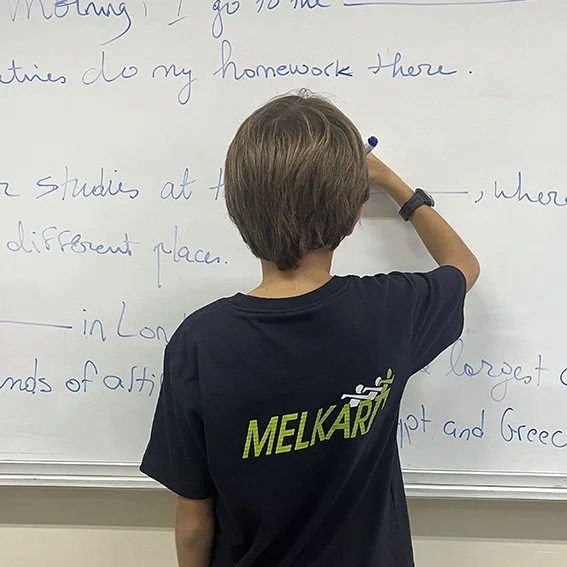 Morning, I go to the
do my homework there.
studies at
different places.
in Lon
largest
nds of arti
and Greec
MELKART